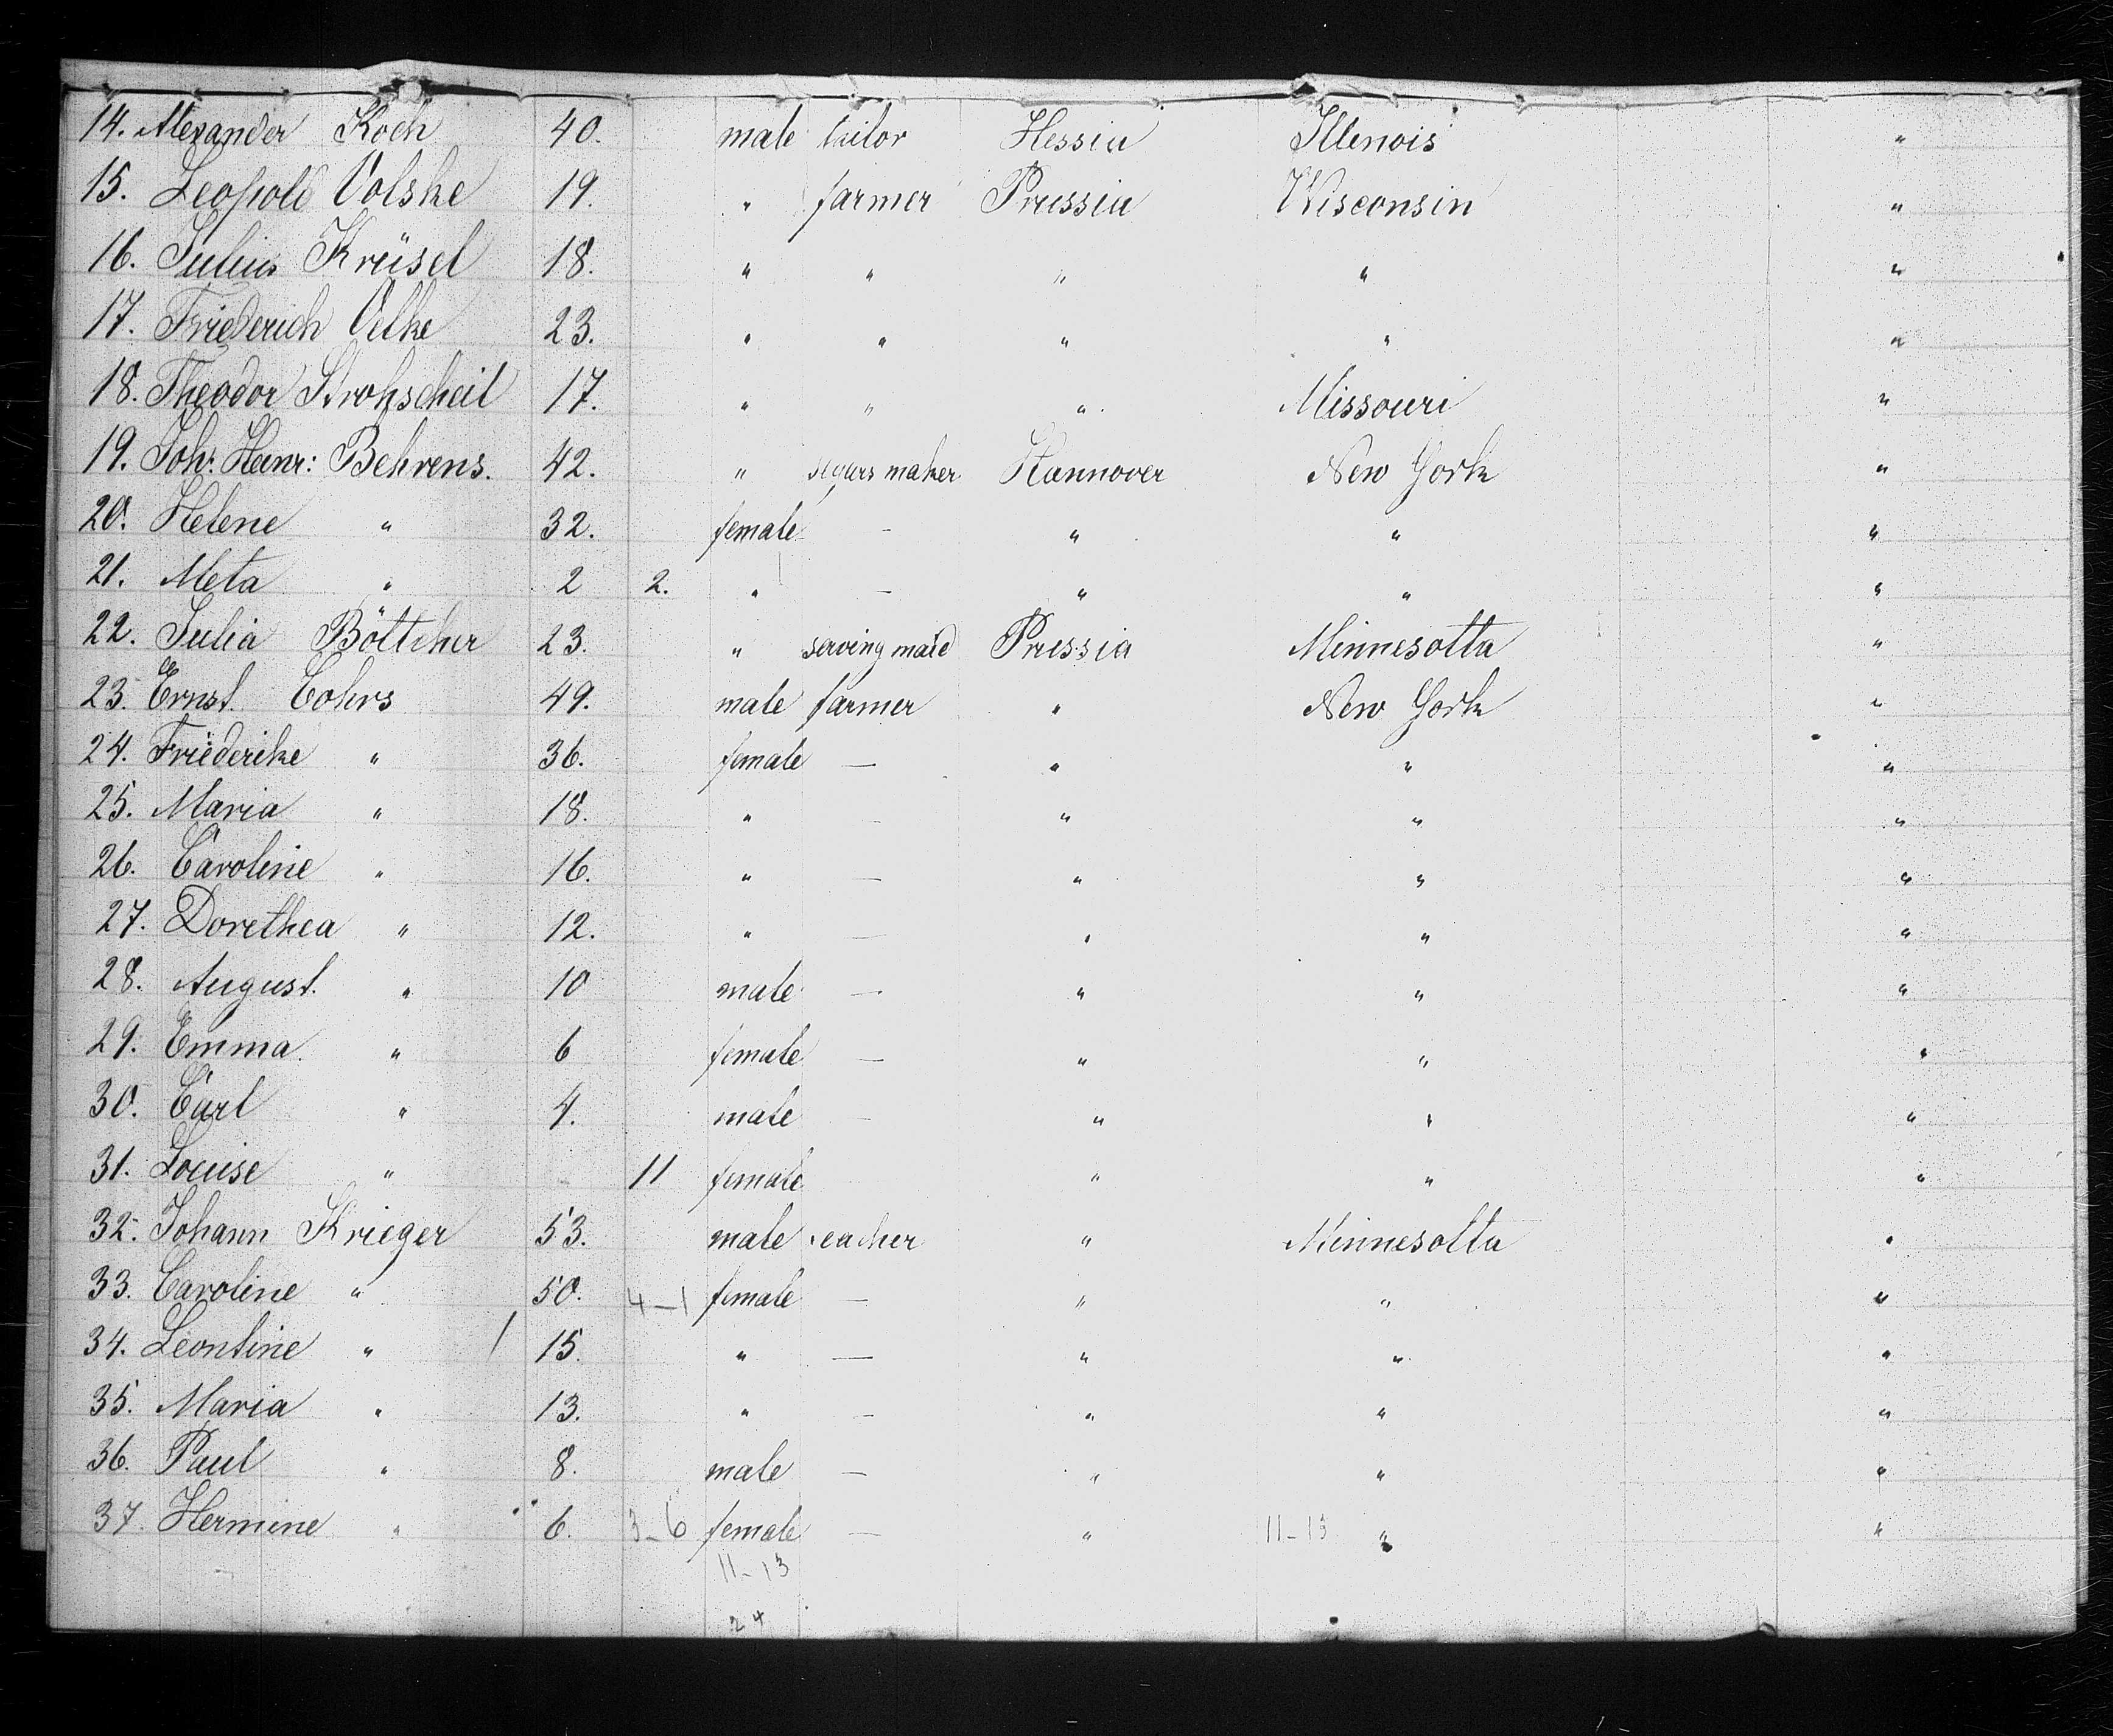 14. Alexander Koch 40. male tailor Hessia Illenois "
15. Leopold Volske 19. " farmer Prussia Wisconsin "
16. Julius Krüsel 18. " " " " "
17. Friederich Velke 23. " " " " "
18. Theodor Strohscheil 17. " " " Missouri "
19. Joh. Heinr: Behrens. 42. " segars maker Hannover New York "
20. Helene " 32. female — " " "
21. Meta " 2 2. " — " " "
22. Julia Böttcher 23. " serving maid Prussia Minnesotta "
23. Ernst Cohrs 49. male farmer " New York "
24. Friederike " 36. female — " " "
25. Maria " 18. " — " " "
26. Caroline " 16. " — " " "
27. Dorethea " 12. " — " " "
28. August. " 10 male — " " "
29. Emma. " 6 female — " " "
30. Carl " 4. male — " " "
31. Louise " 11 female " " "
32. Johann Krieger 53. male teacher " Minnesotta "
33. Caroline " 50. 4-1 female — " " "
34. Leontine " / 15. " — " " "
35. Maria " 13. " — " " "
36. Paul " 8. male — " " "
37. Hermine " 6. 3-6 female — " 11-13 " "
11-13
24